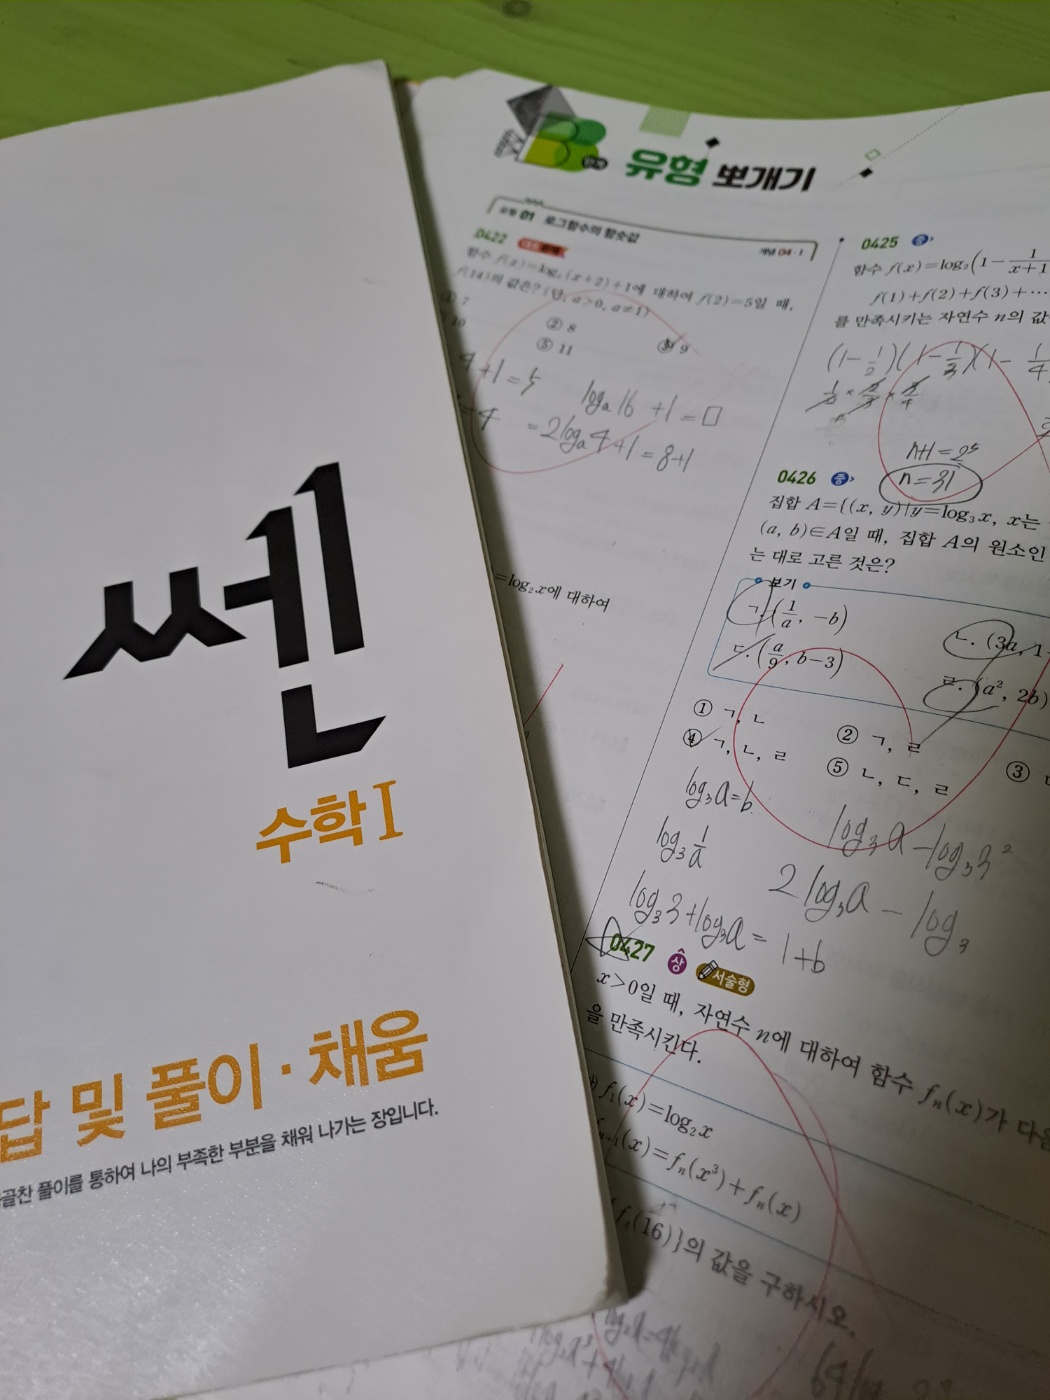 쎈
수학Ⅰ
답 및 풀이·채움
골찬 풀이를 통하여 나의 부족한 부분을 채워 나가는 장입니다.
B
유형 뽀개기
유형 01 로그함수의 함숫값
개념 04-1
0422
함수 f(x)=logₐ(x+2)+1에 대하여 f(2)=5일 때,
f(14)의 값은? (단, a>0, a≠1)
① 7 ② 8 ③ 9
10 ⑤ 11
4+1=5 logₐ16+1=□
=4 =2logₐ4+1=8+1
=log₂x에 대하여
0425 중
함수 f(x)=log₂(1-1/(x+1
f(1)+f(2)+f(3)+⋯
를 만족시키는 자연수 n의 값
(1-1/2)(1-1/3)(1-1/4
1/2×2/3×3/4
n+1=2⁵
n=31
0426 중
집합 A={(x, y)|y=log₃x, x는
(a, b)∈A일 때, 집합 A의 원소인
는 대로 고른 것은?
보기
ㄱ. (1/a, -b) ㄴ. (3a, 1
ㄷ. (a/9, b-3) ㄹ. (a², 2b)
① ㄱ, ㄴ ② ㄱ, ㄹ ③
④ ㄱ, ㄴ, ㄹ ⑤ ㄴ, ㄷ, ㄹ
log₃a=b
log₃1/a
log₃a-log₃3²
log₃3+log₃a=1+b
2log₃a-log₃
0427 상 서술형
x>0일 때, 자연수 n에 대하여 함수 fₙ(x)가 다음
을 만족시킨다.
f₁(x)=log₂x
₊₁(x)=fₙ(x³)+fₙ(x)
(16)}의 값을 구하시오.